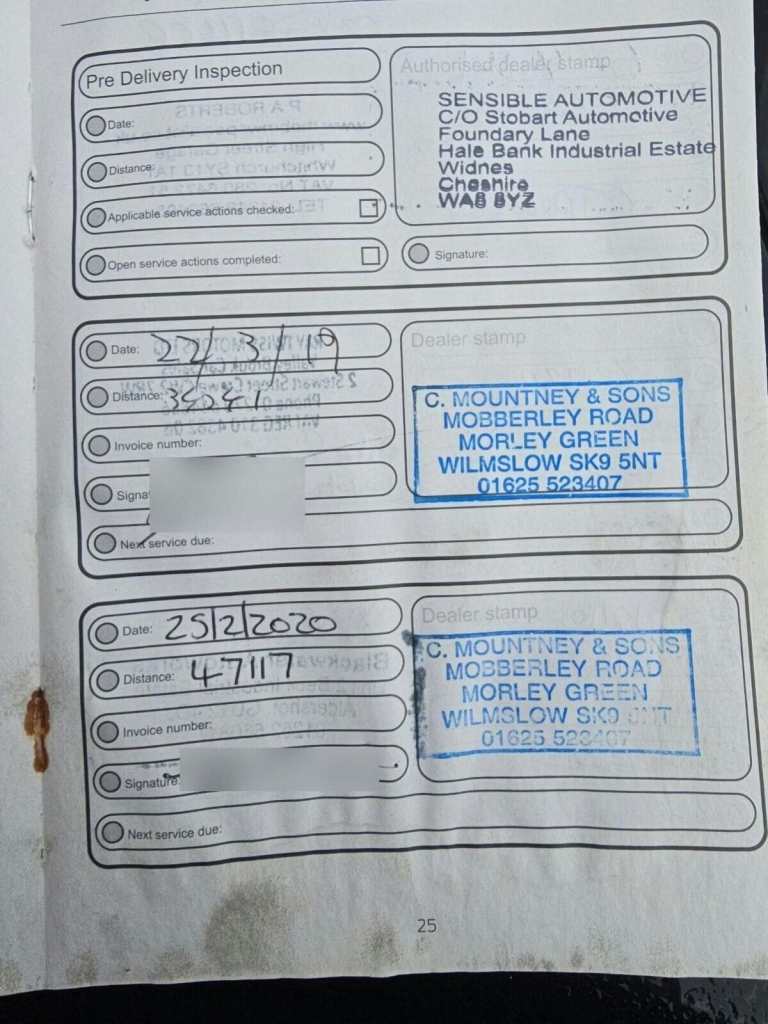 Pre Delivery Inspection
Authorised dealer stamp
Date:
Distance:
Applicable service actions checked:
Open service actions completed:
SENSIBLE AUTOMOTIVE
C/O Stobart Automotive
Foundary Lane
Hale Bank Industrial Estate
Widnes
Cheshire
WA8 8YZ
Signature:
Date:
Distance:
Invoice number:
Signa
Next service due:
Dealer stamp
C. MOUNTNEY & SONS
MOBBERLEY ROAD
MORLEY GREEN
WILMSLOW SK9 5NT
01625 523407
Date: 25/2/2020
Distance: 47117
Invoice number:
Signature:
Next service due:
Dealer stamp
C. MOUNTNEY & SONS
MOBBERLEY ROAD
MORLEY GREEN
WILMSLOW SK9 5NT
01625 523407
25